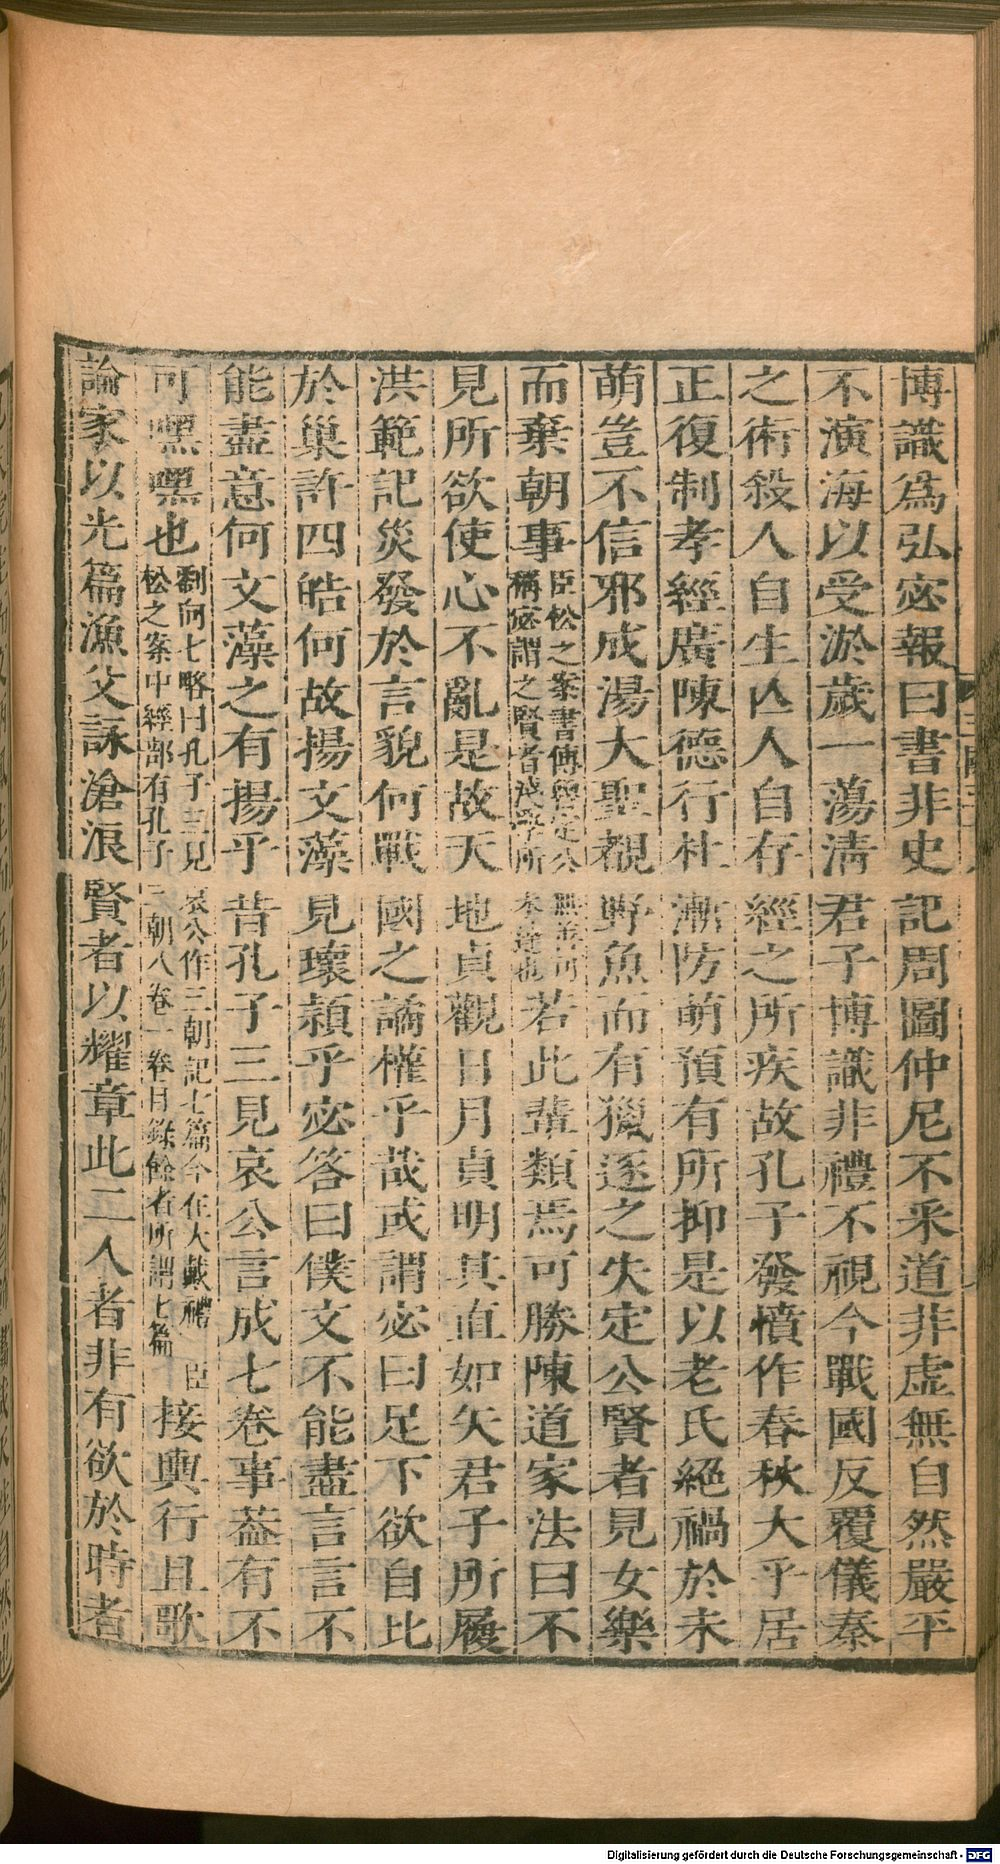 博識爲弘宓報曰書非史記周圖仲尼不采道非虚無自然嚴平
不演海以受淤歲一蕩清君子博識非禮不視今戰國反覆儀秦
之術殺人自生亾人自存經之所疾故孔子發憤作春秋大乎居
正復制孝經廣陳德行杜漸防萌預有所抑是以老氏絕禍於未
萌豈不信邪成湯大聖覩野魚而有獵逐之失定公賢者見女樂
而棄朝事臣松之案書傳魯定公無善可稱宓謂之賢者淺學所未達也若此輩類焉可勝陳道家法曰不
見所欲使心不亂是故天地貞觀日月貞明其直如矢君子所履
洪範記災發於言貌何戰國之譎權乎哉或謂宓曰足下欲自比
於巢許四皓何故揚文藻見瓌穎乎宓答曰僕文不能盡言言不
能盡意何文藻之有揚乎昔孔子三見哀公言成七卷事葢有不
可嘿嘿也劉向七略曰孔子三見哀公作三朝記七篇今在大戴禮臣松之案中經部有孔子三朝八卷一卷目錄餘者所謂七篇接輿行且歌
論家以光篇漁父詠滄浪賢者以耀章此二人者非有欲於時者
Digitalisierung gefördert durch die Deutsche Forschungsgemeinschaft - DFG